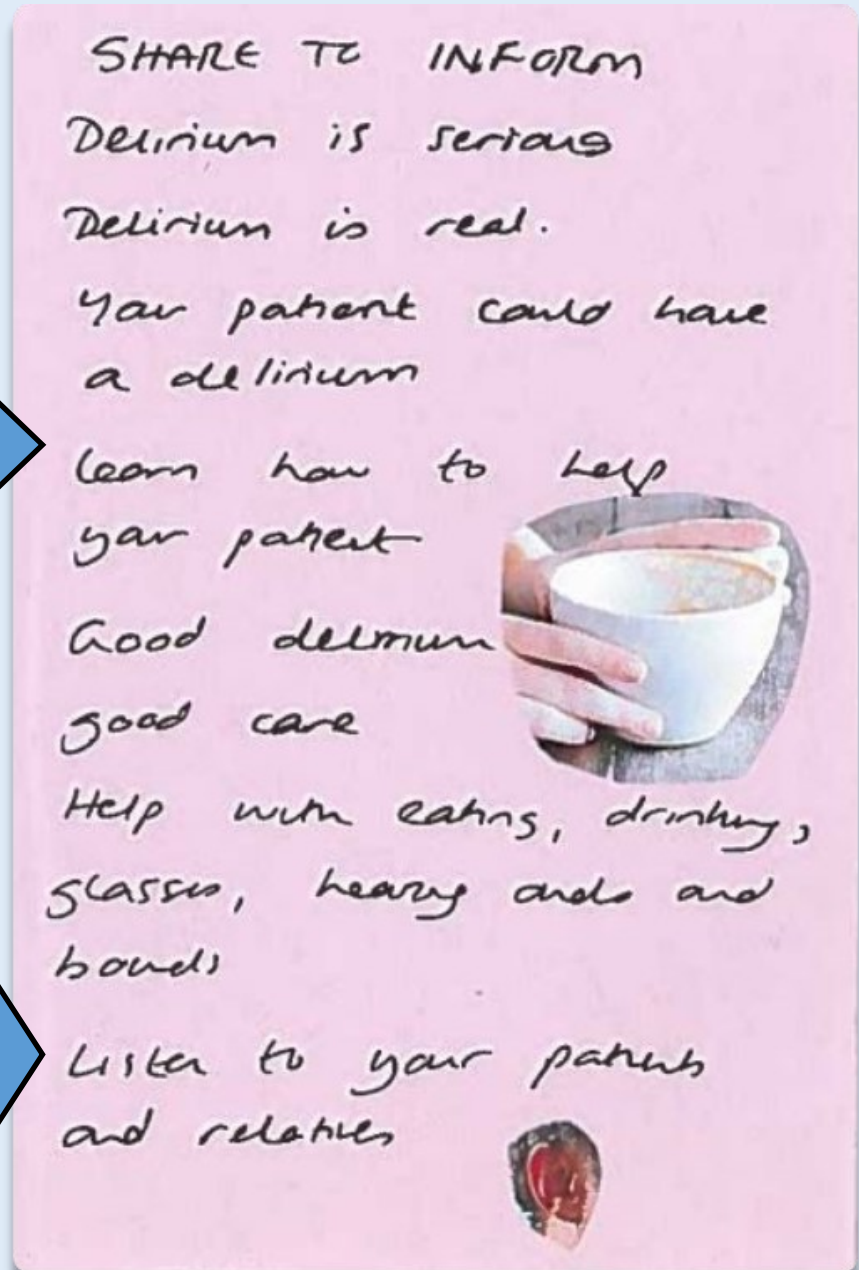 SHARE TO INFORM
Delirium is serious
Delirium is real.
Your patient could have
a delirium
Learn how to help
your patient
Good delirium
good care
Help with eating, drinking,
glasses, hearing aids and
bowels
Listen to your patients
and relatives